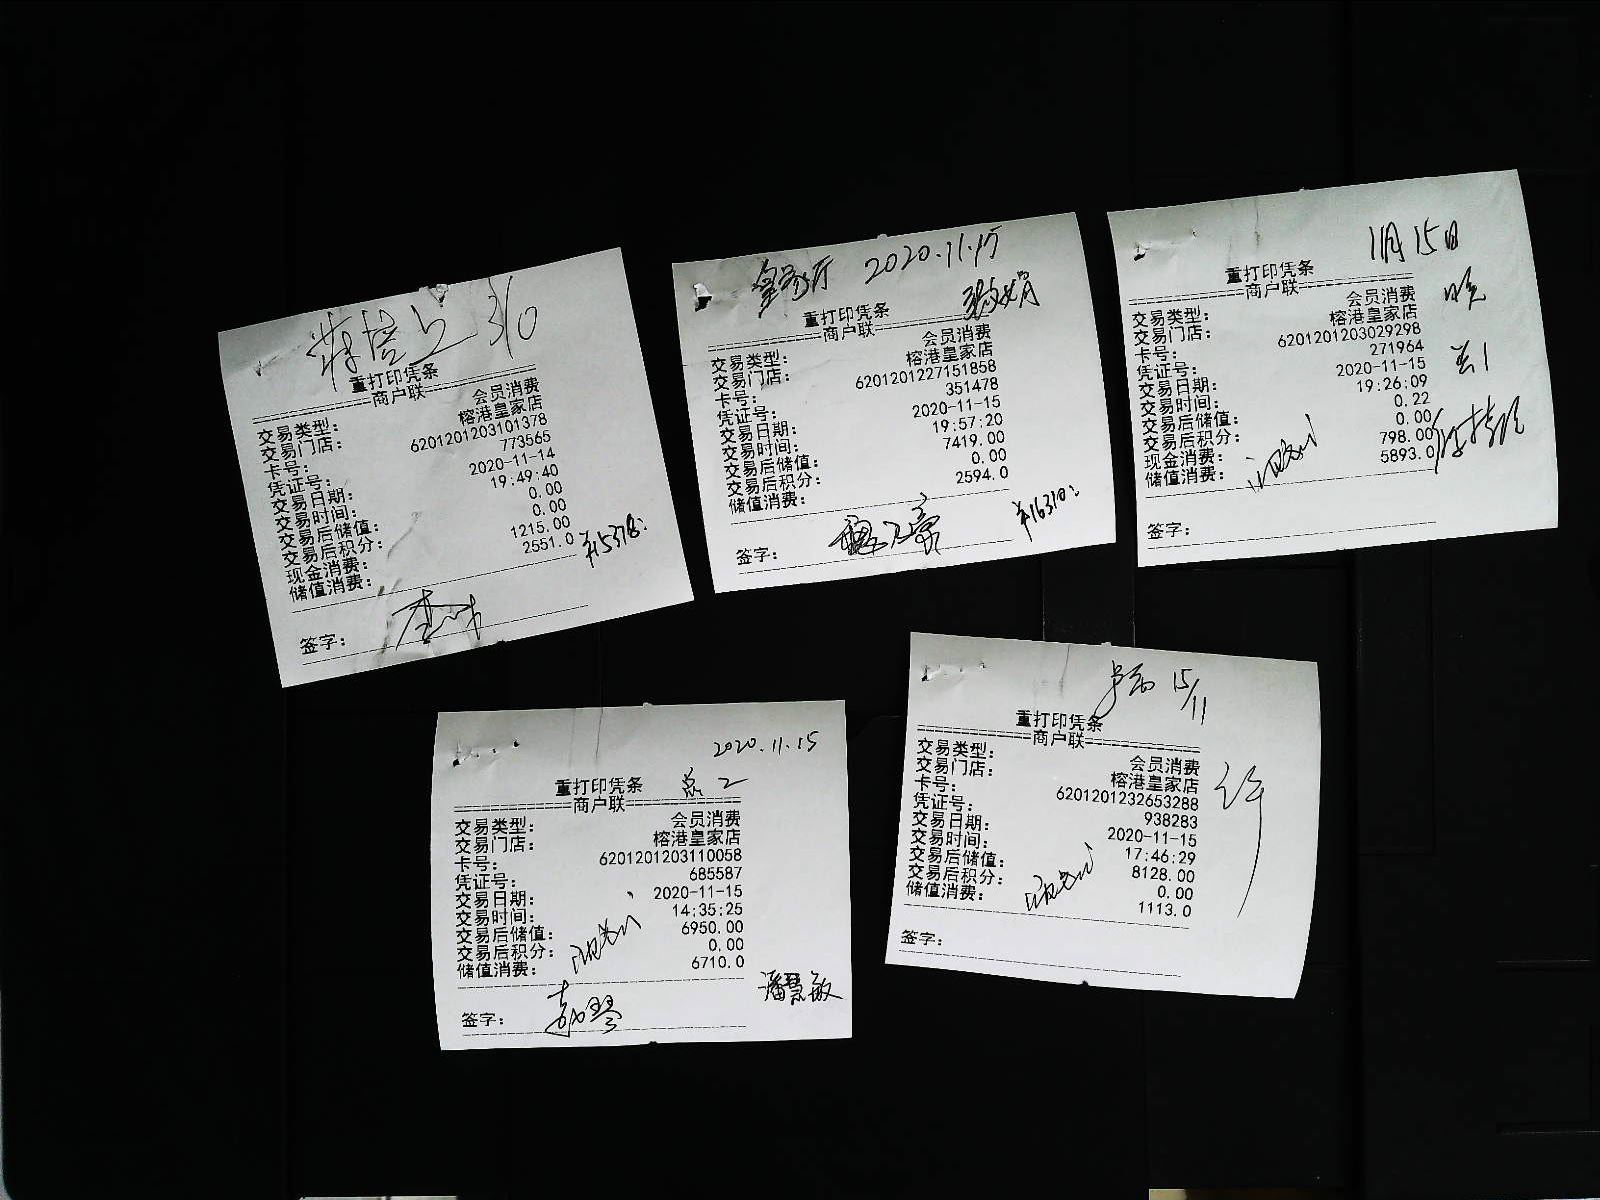 310
重打印凭条
商户联
交易类型: 会员消费
交易门店: 榕港皇家店
卡号: 6201201203101378
凭证号: 773565
交易日期: 2020-11-14
交易时间: 19:49:40
交易后储值: 0.00
交易后积分: 0.00
现金消费: 1215.00
储值消费: 2551.0
签字:
皇家厅 2020.11.15
重打印凭条
商户联
交易类型: 会员消费
交易门店: 榕港皇家店
卡号: 6201201227151858
凭证号: 351478
交易日期: 2020-11-15
交易时间: 19:57:20
交易后储值: 7419.00
交易后积分: 0.00
储值消费: 2594.0
¥16310
签字:
11月15日
晚
重打印凭条
商户联
交易类型: 会员消费
交易门店: 榕港皇家店
卡号: 6201201203029298
凭证号: 271964
交易日期: 2020-11-15
交易时间: 19:26:09
交易后储值: 0.22
交易后积分: 0.00
现金消费: 798.00
储值消费: 5893.0
签字:
2020.11.15
重打印凭条
商户联
交易类型: 会员消费
交易门店: 榕港皇家店
卡号: 6201201203110058
凭证号: 685587
交易日期: 2020-11-15
交易时间: 14:35:25
交易后储值: 6950.00
交易后积分: 0.00
储值消费: 6710.0
潘慧敏
签字:
15/11
重打印凭条
商户联
交易类型: 会员消费
交易门店: 榕港皇家店
卡号: 6201201232653288
凭证号: 938283
交易日期: 2020-11-15
交易时间: 17:46:29
交易后储值: 8128.00
交易后积分: 0.00
储值消费: 1113.0
签字: